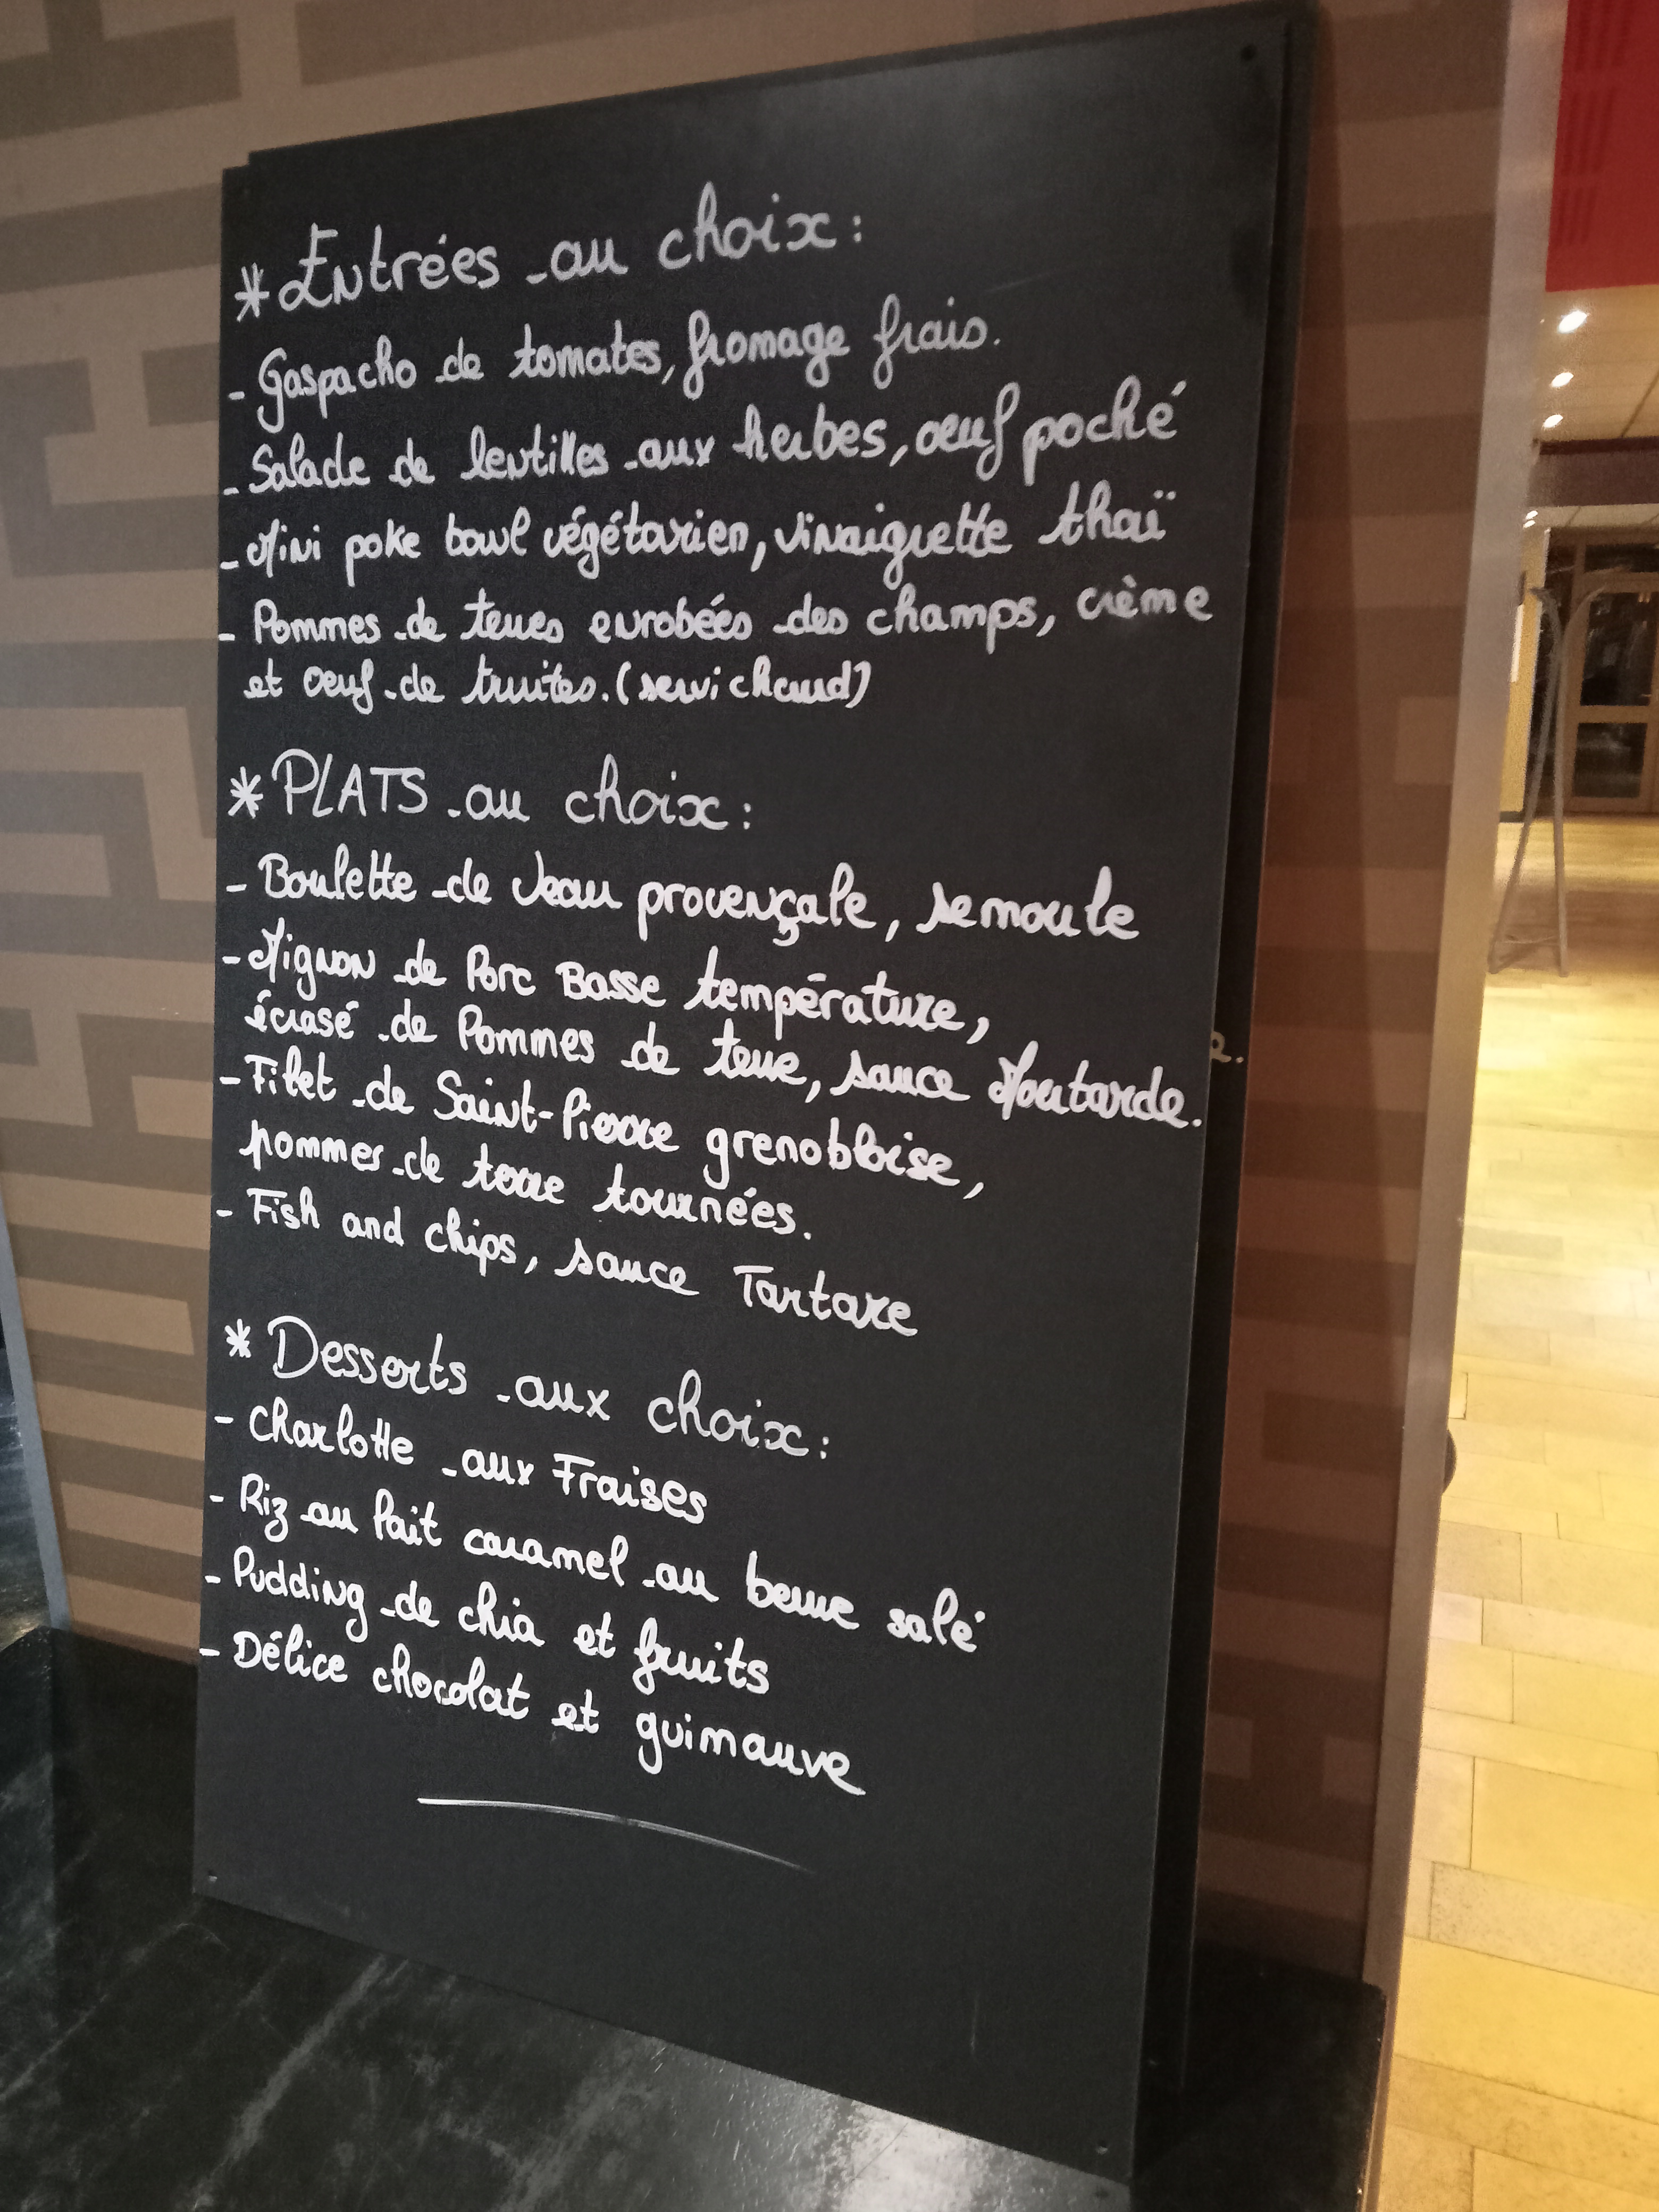 * Entrées au choix :
- Gaspacho de tomates, fromage frais.
- Salade de lentilles aux herbes, oeuf poché
- Mini poke bowl végétarien, vinaigrette thaï
- Pommes de terres enrobées des champs, crème
et oeuf de truites. (servi chaud)
* PLATS au choix :
- Boulette de Veau provençale, semoule
- Mignon de Porc Basse température,
écrasé de Pommes de terre, sauce Moutarde.
- Filet de Saint-Pierre grenobloise,
pommes de terre tournées.
- Fish and chips, sauce Tartare
* Desserts aux choix :
- Charlotte aux Fraises
- Riz au lait caramel au beurre salé
- Pudding de chia et fruits
- Délice chocolat et guimauve